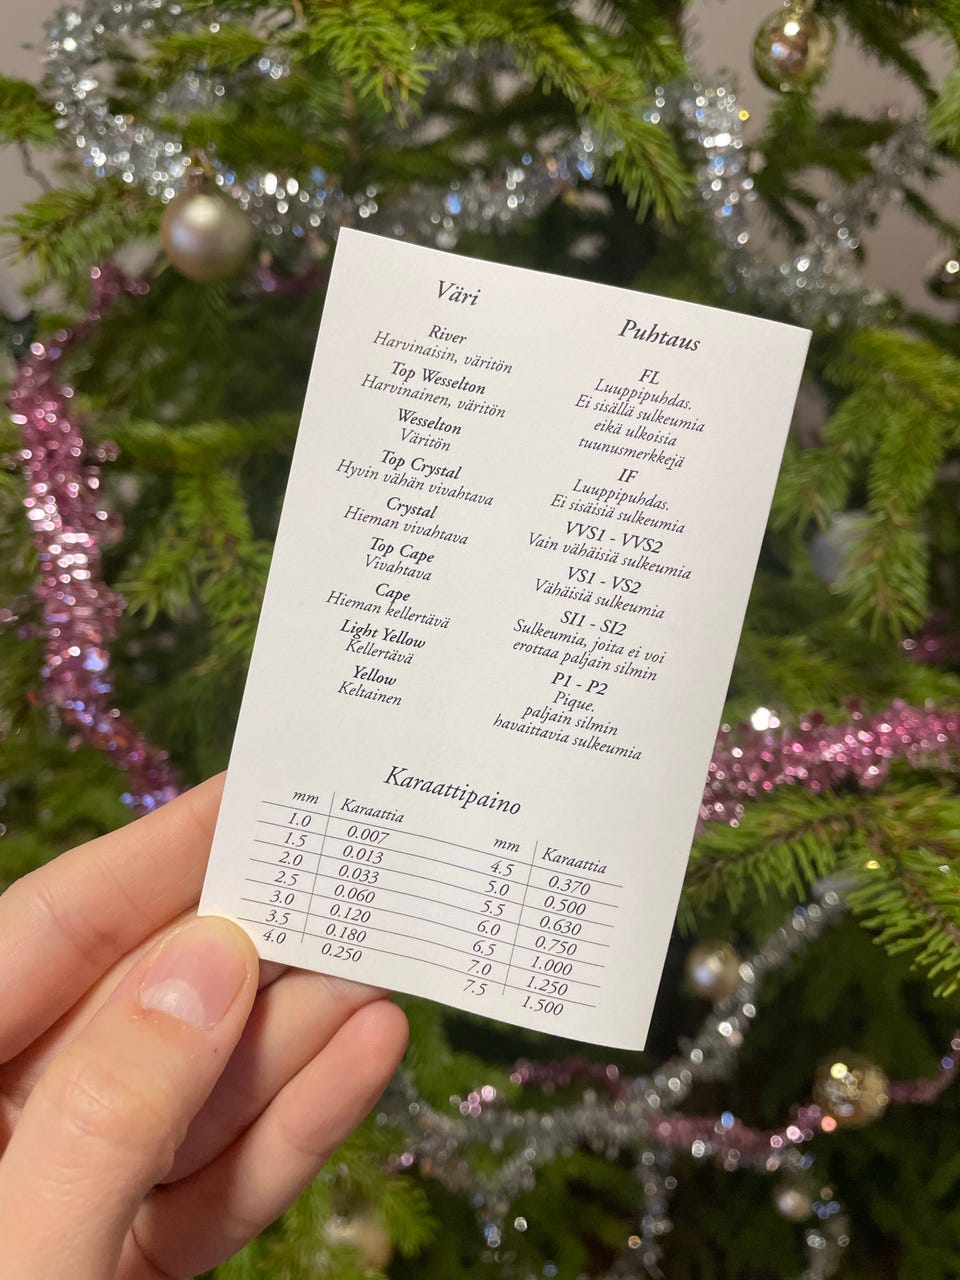 Väri
River
Harvinaisin, väritön
Top Wesselton
Harvinainen, väritön
Wesselton
Väritön
Top Crystal
Hyvin vähän vivahtava
Crystal
Hieman vivahtava
Top Cape
Vivahtava
Cape
Hieman kellertävä
Light Yellow
Kellertävä
Yellow
Keltainen
Puhtaus
FL
Luuppipuhdas.
Ei sisällä sulkeumia
eikä ulkoisia
tuunusmerkkejä
IF
Luuppipuhdas.
Ei sisäisiä sulkeumia
VVS1 - VVS2
Vain vähäisiä sulkeumia
VS1 - VS2
Vähäisiä sulkeumia
SI1 - SI2
Sulkeumia, joita ei voi
erottaa paljain silmin
P1 - P2
Pique.
paljain silmin
havaittavia sulkeumia
Karaattipaino
mm Karaattia
1.0 0.007
1.5 0.013
2.0 0.033
2.5 0.060
3.0 0.120
3.5 0.180
4.0 0.250
mm Karaattia
4.5 0.370
5.0 0.500
5.5 0.630
6.0 0.750
6.5 1.000
7.0 1.250
7.5 1.500